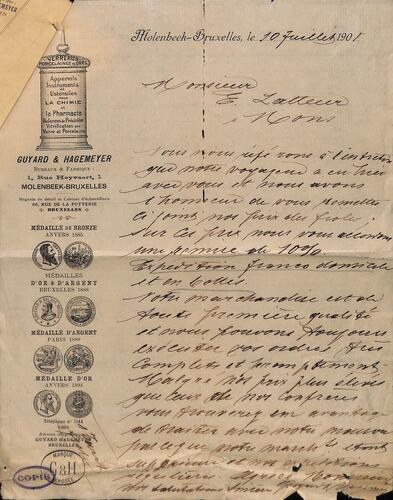 Molenbeek-Bruxelles, le 10 Juillet 1901
VERRERIES
PORCELAINES & GRÈS
Appareils
Instruments
et
Ustensiles
POUR
LA CHIMIE
et
la Pharmacie
Balances de Précision
Vitrification sur
Verre et Porcelaine
GUYARD & HAGEMEYER
BUREAUX & FABRIQUE :
1, Rue Heyvaert, 1
MOLENBEEK-BRUXELLES
Magasin de détail et Cabinet d'échantillons
66, RUE DE LA PUTTERIE
BRUXELLES
MÉDAILLE DE BRONZE
ANVERS 1885
MÉDAILLES
D'OR & D'ARGENT
BRUXELLES 1888
MÉDAILLE D'ARGENT
PARIS 1889
MÉDAILLE D'OR
ANVERS 1894
Téléphone
GUYARD HAGEMEYER
BRUXELLES
MARQUE
G & H
DÉPOSÉE
COPIE
Monsieur
E.
à Mons
Nous nous référons à l'entretien
que notre voyageur a eu hier
avec vous et nous avons
l'honneur de vous remettre
ci joint nos prix de fioles.
Sur ces prix nous vous allouons
une remise de 10%.
Expédition franco domicile
et en colles.
Notre marchandise est de
toute première qualité
et nous pouvons toujours
exécuter vos ordres très
complets et promptement.
Malgré nos prix plus élevés
que ceux de nos confrères
vous trouverez un avantage
de traiter avec notre maison
parce que notre march. étant
supérieure et nos